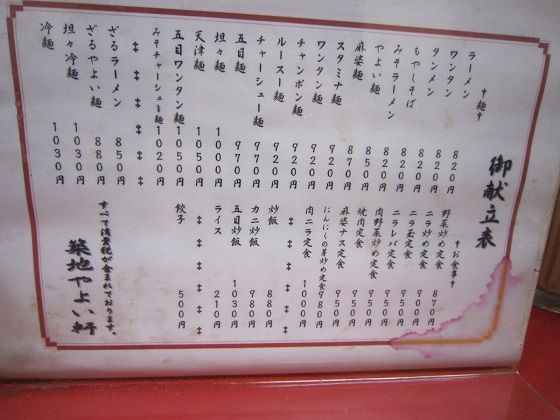 御献立表
✝麺✝
ラーメン 820円
ワンタン 820円
タンメン 820円
もやしそば 820円
みそラーメン 820円
やよい麺 850円
麻婆麺 870円
スタミナ麺 920円
ワンタン麺 920円
チャンポン麺 920円
ルースー麺 920円
チャーシュー麺 970円
五目麺 970円
坦々麺 1000円
天津麺 1050円
五目ワンタン麺 1050円
みそチャーシュー麺 1020円
‡ ‡ ‡ ‡ ‡
ざるラーメン 850円
ざるやよい麺 880円
坦々冷麺 1030円
冷麺 1030円
✝お食事✝
野菜炒め定食 870円
ニラ炒め定食 950円
ニラ玉定食 900円
ニラレバ定食 950円
肉野菜炒め定食 950円
焼肉定食 950円
麻婆ナス定食 950円
にんにくの芽炒め定食 980円
肉ニラ定食 1000円
‡ ‡ ‡ ‡ ‡
炒飯 880円
カニ炒飯 980円
五目炒飯 1030円
ライス 210円
‡ ‡ ‡ ‡ ‡
餃子 500円
すべて消費税が含まれております。
築地やよい軒